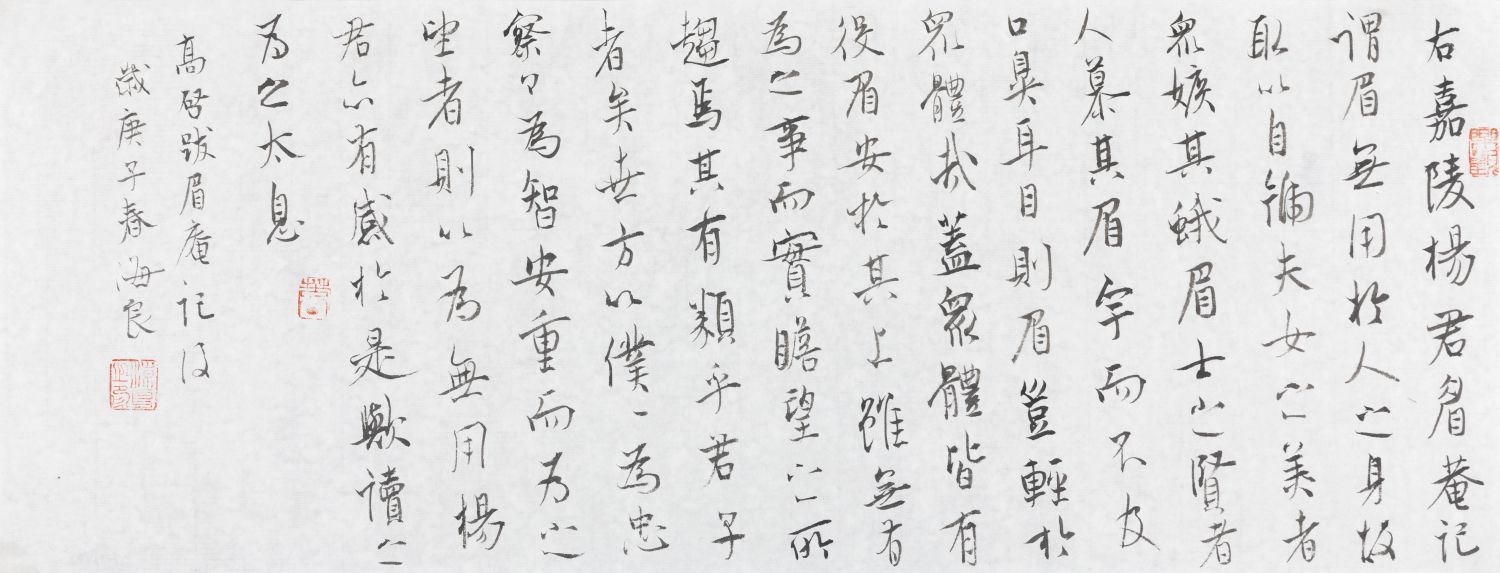 右嘉陵楊君眉菴記
謂眉無用於人之身故
取以自號夫女之美者
眾嫉其蛾眉士之賢者
人慕其眉宇而不及
口鼻耳目則眉豈輕於
眾體哉蓋眾體皆有
役眉安於其上雖無有
為之事而實瞻望之所
趨焉其有類乎君子
者矣世方以僕々為忠
察々為智安重而為之
望者則以為無用楊
君亦有感於是歟讀之
為之太息
高啓跋眉庵記後
歲庚子春海良